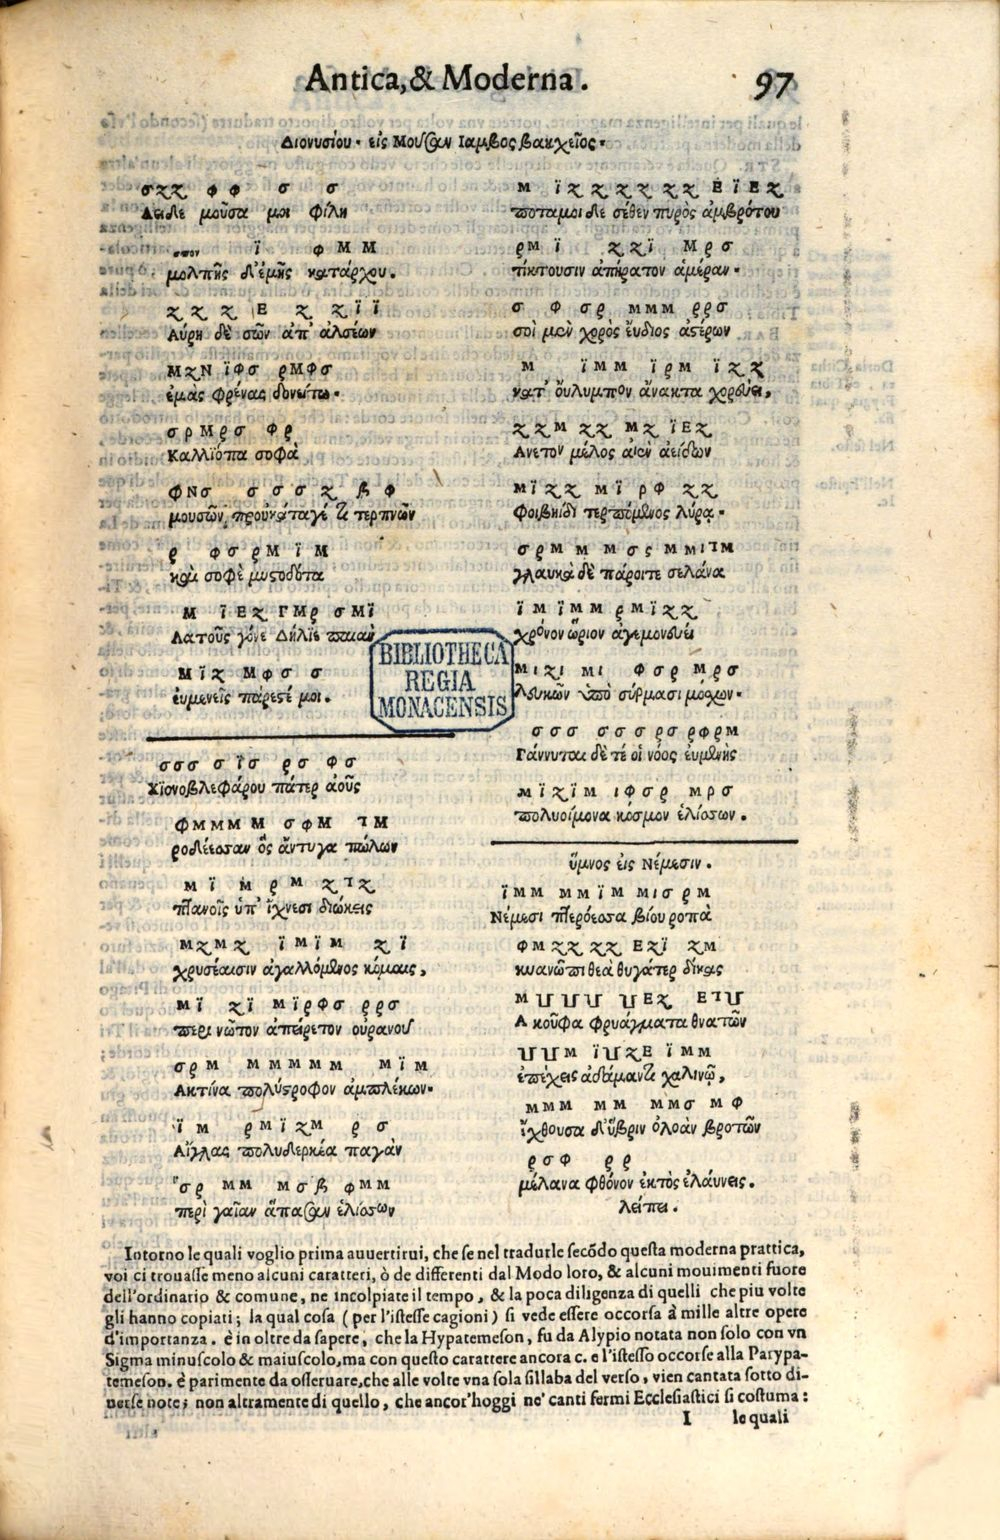 Antica, & Moderna. 97
Διονυσίου· εἰς Μοῦσαν Ιαμβος βακχεῖος·
σϩϩ φ φ σ σ
Αειδε μοῦσα μοι φίλη
ϊ φ Μ Μ
μολπῆς δ'ἐμῆς κατάρχου.
ϩ ϩ ϩ Ε ϩ ϩ ϊ ϊ
Αύρη δὲ σῶν ἀπ' ἀλσέων
ΜϩΝ ϊφσ ρΜφσ
ἐμὰς φρένας δονείτω·
σ ρ Μ ρ σ φ ρ
Καλλϊόπα σοφὰ
ΦΝσ σ σ σ ϩ β φ
μουσῶν προκαταγέτι τερπνῶν
ρ φ σ ρ Μ ϊ Μ
καὶ σοφὲ μυστοδότα
Μ ϊ Ε ϩ Γ Μ ρ σ Μ ϊ
Λατοῦς γόνε Δήλϊε παιαν
Μ ϊ ϩ Μ φ σ σ
ἐυμενεῖς πάρεστέ μοι.
σ σ σ σ ϊ σ ρ σ φ σ
Χϊονοβλεφάρου πάτερ ἀοῦς
Φ Μ Μ Μ Μ σ φ Μ ℸ Μ
ροδόεσσαν ὃς ἄντυγα πώλων
Μ ϊ Μ ρ Μ ϩ ℸ ϩ
πτανοῖς ὑπ' ἴχνεσι διώκεις
Μ ϩ Μ ϩ ϊ Μ ϊ Μ ϩ ϊ
χρυσέαισιν ἀγαλλόμενος κόμαις,
Μ ϊ ϩ ϊ Μ ϊ ρ φ σ ρ ρ σ
περι νῶτον ἀπείρετον οὐρανοῦ
σ ρ Μ Μ Μ Μ Μ Μ Μ ϊ Μ
Ακτίνα πολύστροφον ἀμπλέκων·
ϊ Μ ρ Μ ϊ ϩ Μ ρ σ
Αἴγλας πολυδερκέα παγὰν
σ ρ Μ Μ Μ σ β φ Μ Μ
περὶ γαῖαν ἅπασαν ἑλίσσων
Μ ϊ ϩ ϩ ϩ ϩ ϩ ϩ Ε ϊ Ε ϩ
ποταμοι δὲ σέθεν πυρος ἀμβρότου
ρ Μ ϊ ϩ ϩ ϊ Μ ρ σ
τίκτουσιν ἀπήρατον ἁμέραν·
σ φ σ ρ Μ Μ Μ ρ ρ σ
σοὶ μεν χορὸς ἔυδιος ἀστέρων
Μ ϊ Μ Μ ϊ ρ Μ ϊ ϩ ϩ
κατ' ὄυλυμπον ἄνακτα χορεύει,
ϩ ϩ Μ ϩ ϩ Μ ϩ ϊ Ε ϩ
Ανετον μέλος αἰὲν ἀείδων
Μ ϊ ϩ ϩ Μ ϊ ρ Φ ϩ ϩ
Φοιβηΐδι τερπόμενος λύρᾳ·
σ ρ Μ Μ Μ σ ς Μ Μ ι ℸ Μ
γλαυκὰ δὲ πάροιτε σελάνα
ϊ Μ ϊ Μ Μ ρ Μ ϊ ϩ ϩ
χρόνον ὥριον αγεμονεύει
Μ ι ϩ ι Μ ι Φ σ ρ Μ ρ σ
λευκῶν ὑπὸ σύρμασι μόσχων·
σ σ σ σ σ σ ρ σ ρ φ ρ Μ
Γάννυται δὲ τέ οἱ νόος ἐυμενὴς
Μ ϊ ϩ ϊ Μ ι φ σ ρ Μ ρ σ
πολυοίμονα κόσμον ἑλίσσων.
ὕμνος ἐις Νέμεσιν.
ϊ Μ Μ Μ Μ ϊ Μ Μ ι σ ρ Μ
Νέμεσι πτερόεσσα βίου ροπὰ
φ Μ ϩ ϩ ϩ ϩ Ε ϩ ϊ ϩ Μ
κυανῶπι θεὰ θυγάτερ δίκας
Α κοῦφα φρυάγματα θνατῶν
ἐπέχεις ἀδάμαντι χαλινῷ,
Μ Μ Μ Μ Μ Μ Μ σ Μ Φ
ἴχθουσα δ'ὕβριν ὀλοὰν βροτῶν
ρ σ φ ρ ρ
μέλανα φθόνον ἐκτὸς ἐλάυνεις.
λείπει.
BIBLIOTHECA
REGIA
MONACENSIS
Intorno le quali voglio prima auuertirui, che se nel tradurle secõdo questa moderna prattica,
voi ci trouasse meno alcuni caratteri, ò de differenti dal Modo loro, & alcuni mouimenti fuore
dell'ordinario & comune, ne incolpiate il tempo, & la poca diligenza di quelli che piu volte
gli hanno copiati; la qual cosa (per l'istesse cagioni) si vede essere occorsa à mille altre opere
d'importanza. è in oltre da sapere, che la Hypatemeson, fu da Alypio notata non solo con vn
Sigma minuscolo & maiuscolo, ma con questo carattere ancora c. e l'istesso occorse alla Parypa-
temeson. è parimente da osseruare, che alle volte vna sola sillaba del verso, vien cantata sotto di-
uerse note; non altramente di quello, che ancor'hoggi ne' canti fermi Ecclesiastici si costuma:
I le quali